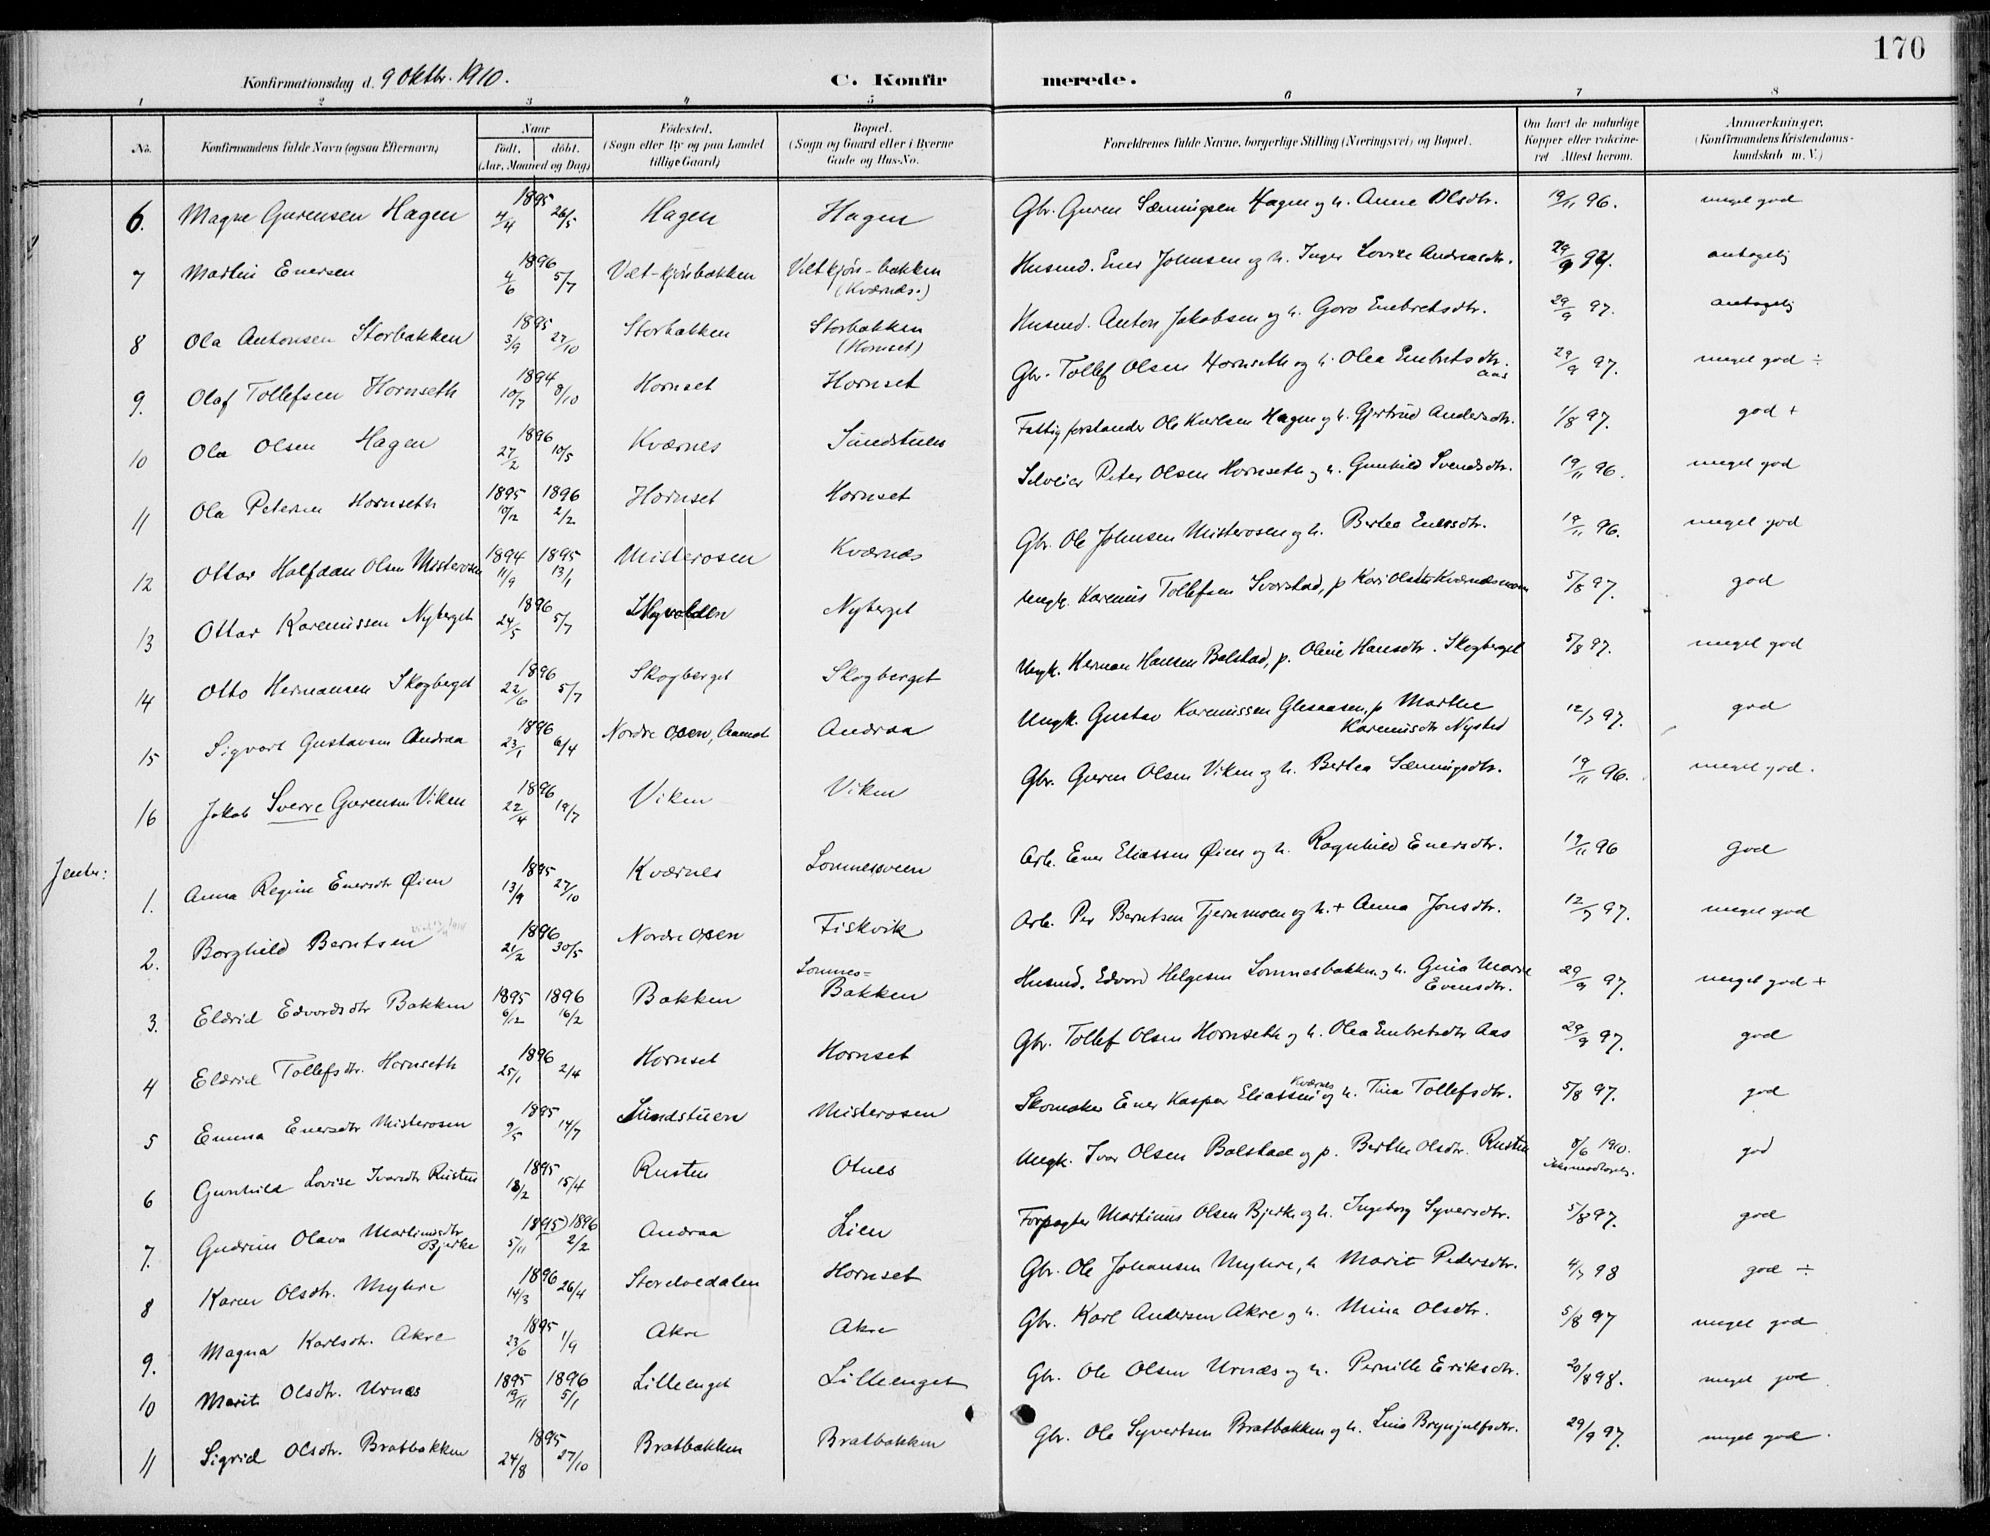 170
Konfirmationsdag d. 9 Oktbr. 1910.
C. Konfirmerede.
1 2 3 4 5 6 7 8
No. Konfirmandens fulde Navn (ogsaa Efternavn) Naar født. døbt. (Aar, Maaned og Dag) Fødested. (Sogn eller By og paa Landet tillige Gaard) Bopæl. (Sogn og Gaard eller i Byerne Gade og Hus-No. Forældrenes fulde Navne, borgerlige Stilling (Næringsvei) og Bopæl. Om havt de naturlige Kopper eller vakcineret Attest herom. Anmærkninger. (Konfirmandens Kristendomskundskab m. V.)
6. Magne Gurensen Hagen 1895 4/4 26/5 Hagen Hagen Gbr. Guren Sæmingsen Hagen og h. Anne Olsdtr. 19/11 96. meget god
7 Martin Enersen 1896 4/6 5/7 Velt-kjønbakken Veltkjøn-bakken (Kværnæs.) Husmd. Ener Johnsen og h. Inger Lovise Andreasdtr. 29/9 97. antagelig
8 Ola Antonsen Storbakken 1895 3/9 27/10 Storbakken Storbakken (Hornset) Husmd. Anton Jakobsen og h. Goro Embretsdtr. 29/9 97. antagelig
9. Olaf Tollefsen Hornseth 1894 10/7 8/10 Hornset Hornset Gbr. Tollef Olsen Hornseth og h. Olea Embretsdtr. Aas 29/9 97. meget god ÷
10 Ola Olsen Hagen 1896 27/2 10/5 Kværnes Sundstuen Fattigforstander Ole Karlsen Hagen og h. Gjertrud Andersdtr. 1/8 97. god +
11 Ola Petersen Hornseth 1895 10/12 1896 2/2 Hornset Hornset Selveier Peter Olsen Hornseth og h. Gunhild Svendsdtr. 19/11 96. meget god
12 Ottar Halfdan Olsen Misterosen 1894 11/9 1895 13/1 Misterosen Kværnæs Gbr. Ole Johnsen Misterosen og h. Bertea Enersdtr. 19/11 96. meget god
13 Ottar Karenussen Nyberget 1896 24/5 5/7 Nyberget Ungk. Karenus Tollefsen Svorstad, p Kari Olsdtr Kværnæsmoen 5/8 97. god
14 Otto Hermansen Skogberget 1896 22/6 5/7 Skogberget Skogberget Ungk. Herman Hansen Bolstad, p. Oline Hansdtr. Skogberget 5/8 97. meget god
15 Sigvart Gustavsen Andraa 1896 23/1 6/4 Nordre Osen, Aamot Andraa Ungk. Gustav Karenussen Glesaasen, p Marthe Karenusdtr Nysted 12/7 97. god
16 Jakob Sverre Gurensen Viken 1896 22/4 19/7 Viken Viken Gbr. Guren Olsen Viken og h. Bertea Sæmingsdtr. 19/11 96. meget god.
Jenter:
1. Anna Regine Enersdtr Øien 1895 13/9 27/10 Kværnes Lomnesveen Arb. Ener Eliassen Øien og h. Ragnhild Enersdtr. 19/11 96 God
2. Borghild Berntsen 1896 21/2 30/5 Nordre Osen Fiskvik Arb. Per Berntsen Tjernmoen og h. + Anna Jonsdtr. 12/7 97. meget god
3. Eldrid Edvardsdtr Bakken 1895 6/12 1896 16/2 Bakken Lomnes= Bakken Husmd. Edvard Helgesen Lomnesbakken og h. Gina Marie Evensdtr. 29/9 97. meget god +
4 Eldrid Tollefsdtr. Hornseth 1896 25/1 2/4 Hornset Hornset Gbr. Tollef Olsen Hornseth og h. Olea Embretsdtr Aas 29/9 97. god
5 Emma Enersdtr Misterosen 1895 9/5 14/7 Sundstuen Misterosen Skomaker Ener Kasper Eliassen Kværnes og h. Tina Tollefsdtr. 5/8 97. god
6 Gunhild Lovise Ivarsdtr Rusten 1895 18/2 15/4 Rusten Otnes Ungk. Ivar Olsen Bolstad og p. Berthe Olsdtr. Rusten 8/6 1910. god
7. Gudrun Olava Martinusdtr Bjerke 1895 5/11 1896 2/2 Andraa Lien Forpagter Martinus Olsen Bjerke og h. Ingeborg Syversdtr. 5/8 97. god
8 Karen Olsdtr. Myhre 1896 14/3 26/4 Storelvedalen Hornset Gbr. Ole Johansen Myhre, h Marit Pedersdtr. 4/7 98 god ÷
9. Magna Karlsdtr. Akre 1895 23/6 1/9 Akre Akre Gbr. Karl Andersen Akre og h. Mina Olsdtr. 5/8 97 meget god
10 Marit Olsdtr. Urnæs 1895 19/11 1896 5/1 Lilleenget Lilleenget Gbr. Ole Olsen Urnæs og h. Pernille Eriksdtr. 20/8 98. meget god.
11 Sigrid Olsdtr. Bratbakken 1895 24/8 27/10 Bratbakken Bratbakken Gbr. Ole Syvertsen Bratbakken og h. Lina Brynjulfsdtr. 29/9 97. meget god.